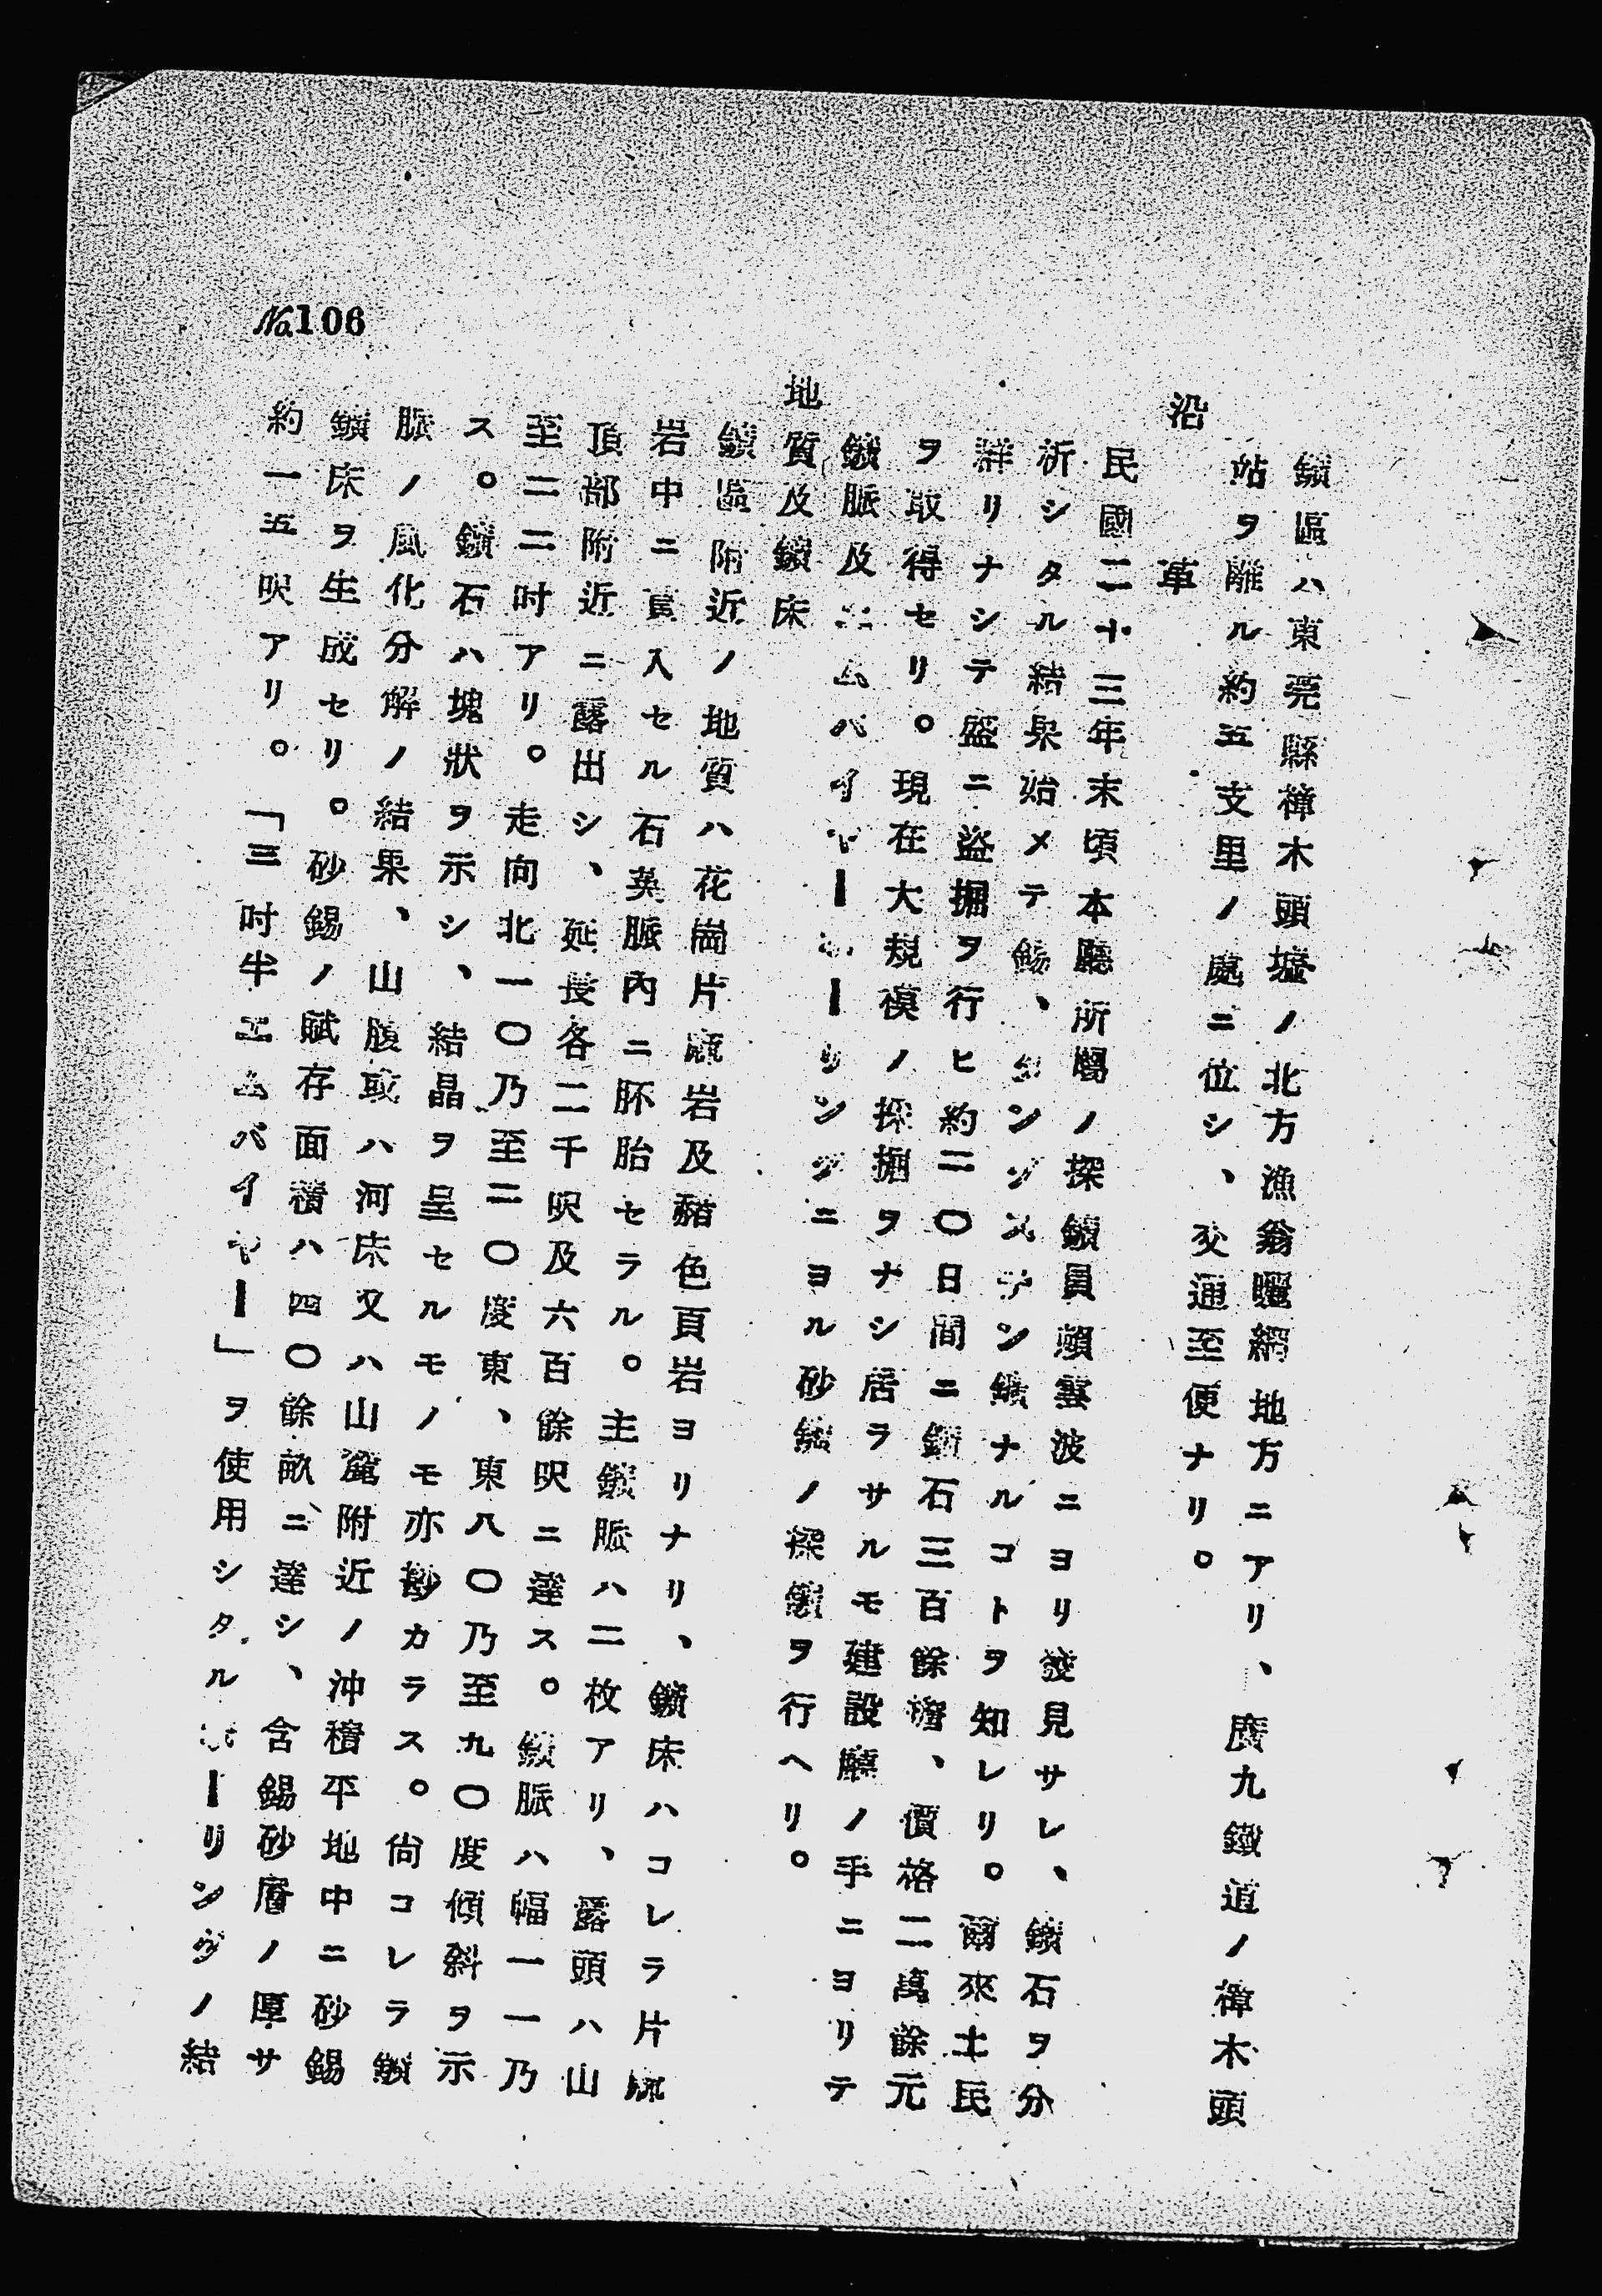 鑛區ハ東莞縣樟木頭墟ノ北方漁翁曬網地方ニアリ、廣九鐵道ノ樟木頭
站ヲ離ル約五支里ノ處ニ位シ、交通至便ナリ。
沿革
民國二十三年末頃本廳所屬ノ探鑛員賴雲波ニヨリ發見サレ、鑛石ヲ分
析シタル結果始メテ錫、タングステン鑛ナルコトヲ知レリ。爾來土民
群リナシテ盛ニ盜掘ヲ行ヒ約二〇日間ニ鑛石三百餘擔、價格二萬餘元
ヲ取得セリ。現在大規模ノ採掘ヲナシ居ラサルモ建設廳ノ手ニヨリテ
鑛脈及エムパイヤーボーリングニヨル砂鑛ノ探鑛ヲ行ヘリ。
地質及鑛床
鑛區附近ノ地質ハ花崗片麻岩及豬色頁岩ヨリナリ、鑛床ハコレラ片麻
岩中ニ貫入セル石英脈內ニ胚胎セラル。主鑛脈ハ二枚アリ、露頭ハ山
頂部附近ニ露出シ、延長各二千呎及六百餘呎ニ達ス。鑛脈ハ幅一一乃
至二二吋アリ。走向北一〇乃至二〇度東、東八〇乃至九〇度傾斜ヲ示
ス。鑛石ハ塊狀ヲ示シ、結晶ヲ呈セルモノモ亦尠カラス。尙コレラ鑛
脈ノ風化分解ノ結果、山腹或ハ河床又ハ山麓附近ノ沖積平地中ニ砂錫
鑛床ヲ生成セリ。砂錫ノ賦存面積ハ四〇餘畝ニ達シ、含錫砂層ノ厚サ
約一五呎アリ。「三吋半エムパイヤー」ヲ使用シタルボーリングノ結
No.106